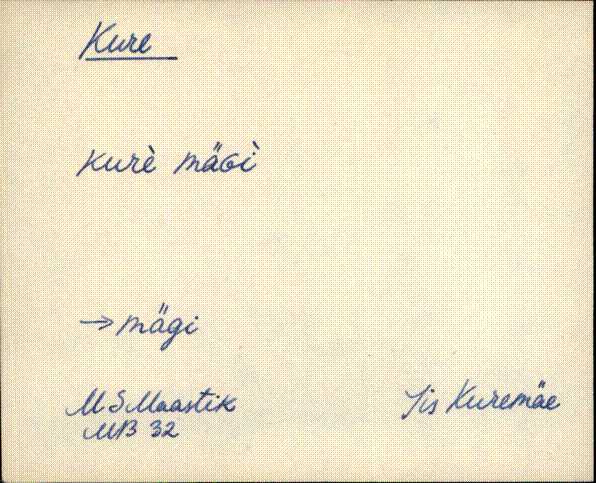 Kure
kurè mäGì
→ mägi
M S Maastik
MB 32
Jis Kuremäe